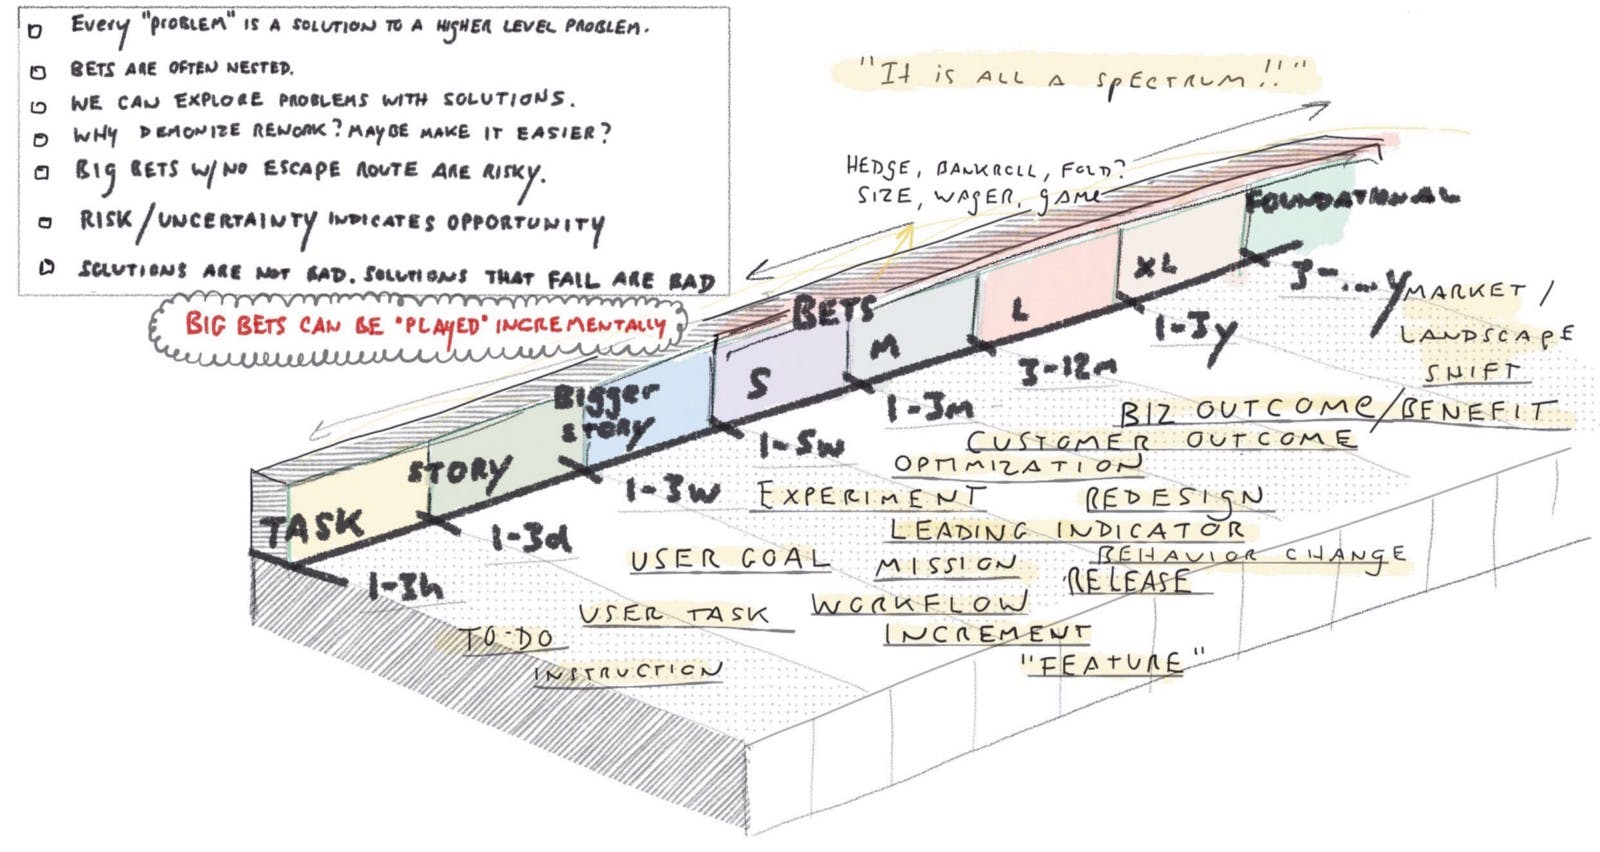 Every "problem" is a solution to a higher level problem.
Bets are often nested.
We can explore problems with solutions.
Why demonize rework? Maybe make it easier?
Big bets w/ no escape route are risky.
Risk/uncertainty indicates opportunity
Solutions are not bad. Solutions that fail are bad
BIG BETS CAN BE "PLAYED" INCREMENTALLY
"It is all a spectrum!!"
HEDGE, BANKROLL, FOLD?
SIZE, WAGER, GAME
FOUNDATIONAL
XL
L
BETS
M
S
Bigger
STORY
STORY
TASK
1-3h
1-3d
1-3w
1-5w
1-3m
3-12m
1-3y
3-....y
MARKET /
LANDSCAPE
SHIFT
BIZ OUTCOME/BENEFIT
CUSTOMER OUTCOME
OPTIMIZATION
EXPERIMENT
REDESIGN
LEADING INDICATOR
BEHAVIOR CHANGE
USER GOAL
MISSION
RELEASE
WORKFLOW
USER TASK
INCREMENT
TO-DO
"FEATURE"
INSTRUCTION